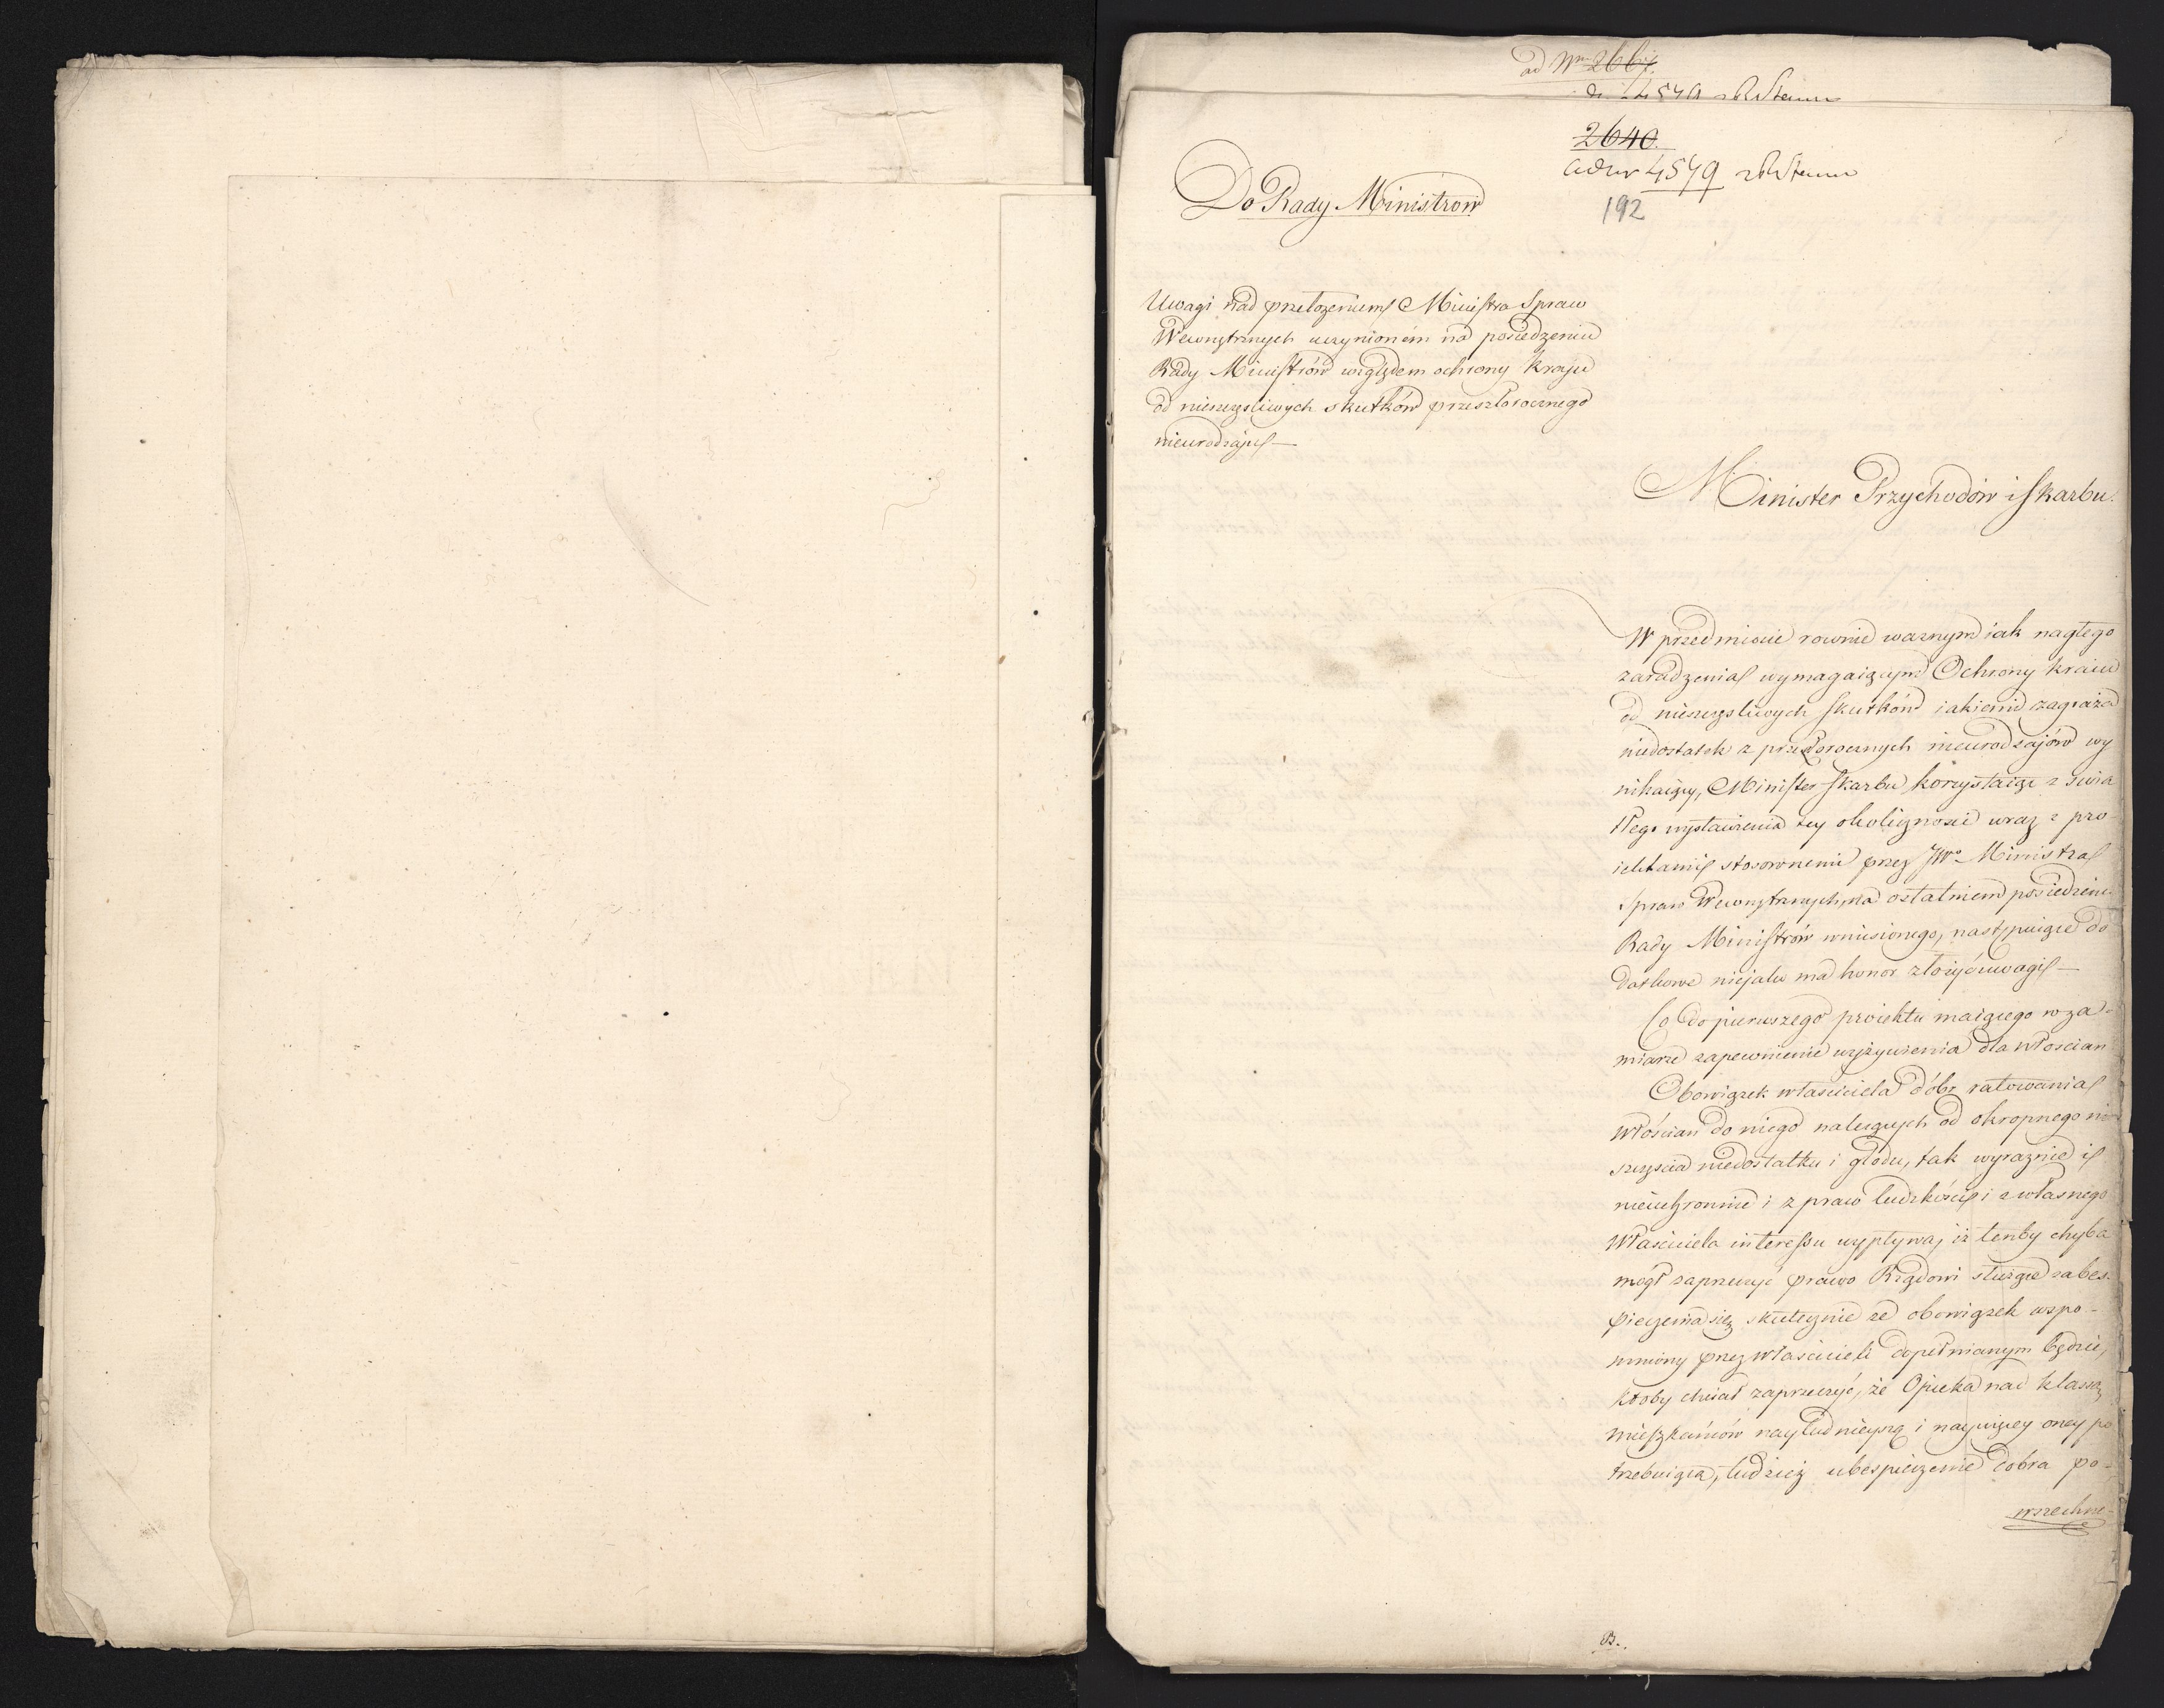 ad Nrm 2661.
2640.
ad nr 4579
192
Do Rady Ministrow
Uwagi nad przełożeniem Ministra Spraw
Wewnętrznych uczynioném na posiedzeniu
Rady Ministrów względem ochrony kraju
od nieszczęsliwych skutków przeszłorocznego
nieurodzaju —
Minister Przychodów i Skarbu.
W przedmiocie rownie waznym iak nagłego
zaradzenia wymagaiącym Ochrony kraiu
od nieszczęsliwych skutków iakiemi zagraża
niedostatek z przeszłorocznych nieurodzajów wy
nikaiący, Minister Skarbu korzystaiąc z swia
tłego wystawienia tey okoliczności wraz z pro-
iektami stosownemi przez JWo Ministra
Spraw Wewnętrznych, na ostatniem posiedzeniu
Rady Ministrów wniesionego, następuiące do
datkowe niejako ma honor złożyć uwagi —
Co do pierwszego proiektu maiącego w za-
miarze zapewnienie wyżywienia dla włoscian
Obowiązek własciciela dóbr ratowania
włościan do niego należących od okropnego nie
szczęscia niedostatku i głodu, tak wyraznie i
nieuchronnie i z praw ludzkości i z własnego
Własciciela interessu wypływa, iż tenby chyba
mógł zaprzeczyć prawo Rządowi służące zabes-
pieczenia się skutecznie ze obowiązek wspo-
mniony przez własicieli dopełnianym będzie,
ktoby chciał zaprzeczyć, że Opieka nad klassą
mieszkańców nayludnieyszą i naywięcey oney po
trzebuiącą, tudzież ubespieczenie dobra po-
wszechne-
B.